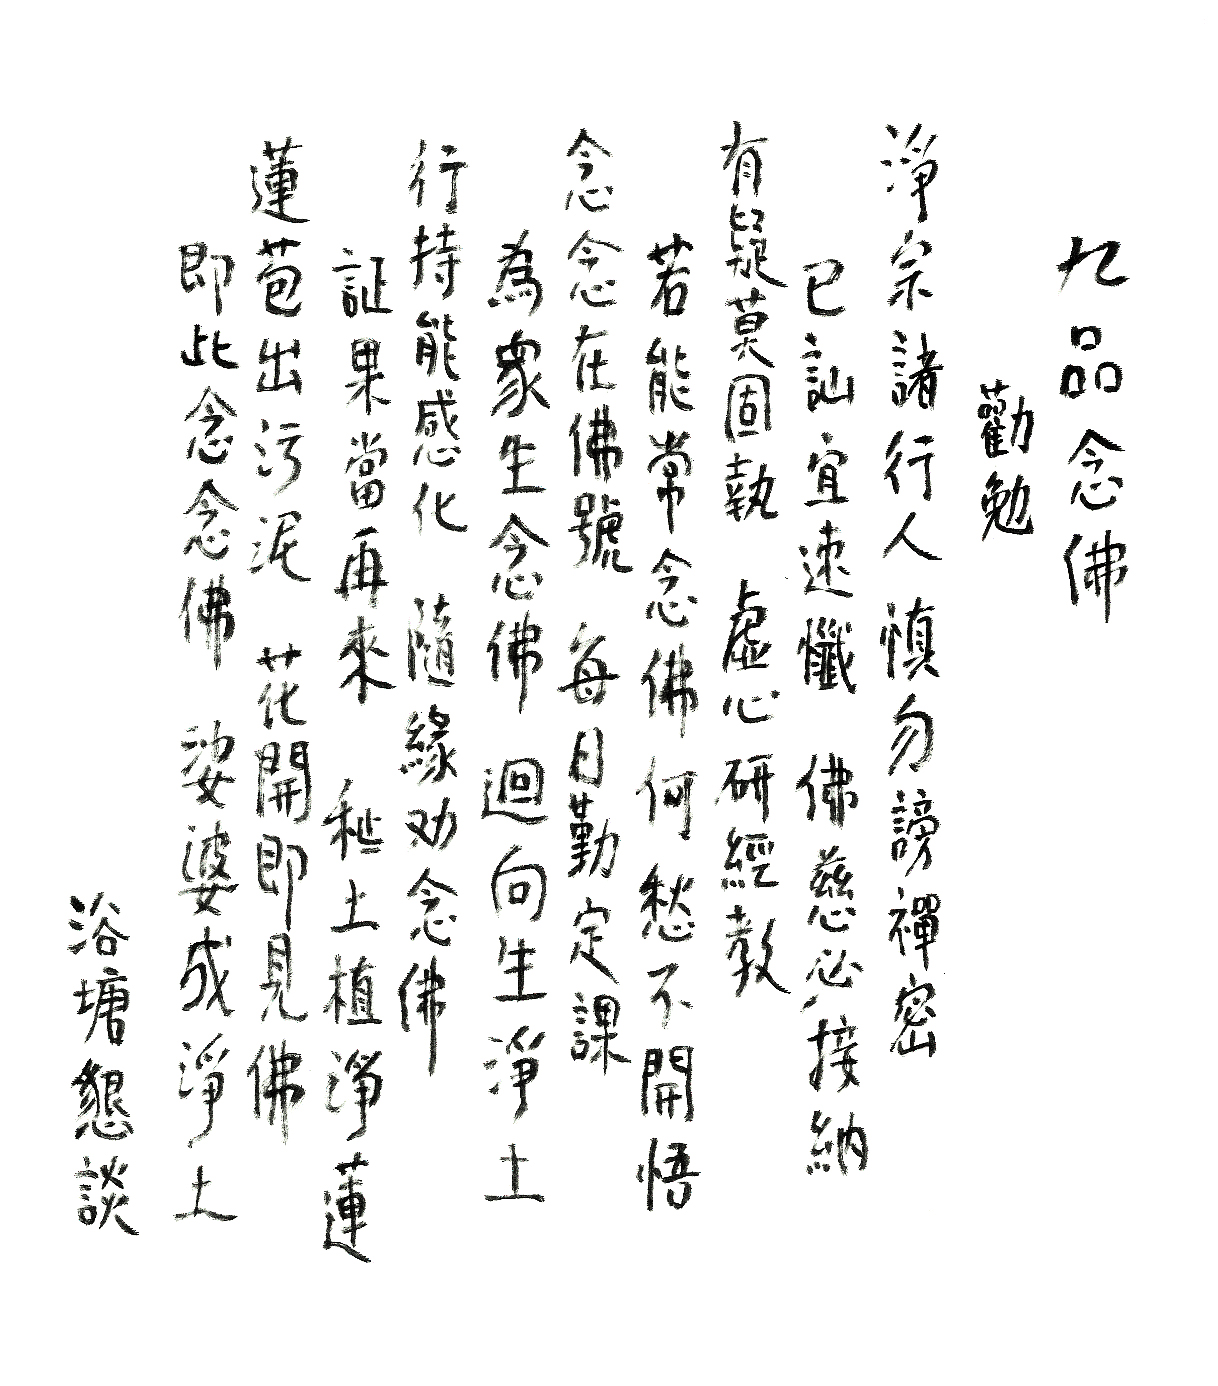 九品念佛
勸勉
淨宗諸行人 慎勿謗禪密
已訕宜速懺 佛慈必接納
有疑莫固執 虛心研經教
若能常念佛何愁不開悟
念念在佛號 每日勤定課
為眾生念佛 迴向生淨土
行持能感化 隨緣劝念佛
証果當再來 秽土植淨蓮
蓮苞出污泥 花開即見佛
即此念念佛 娑婆成淨土
浴塘懇談